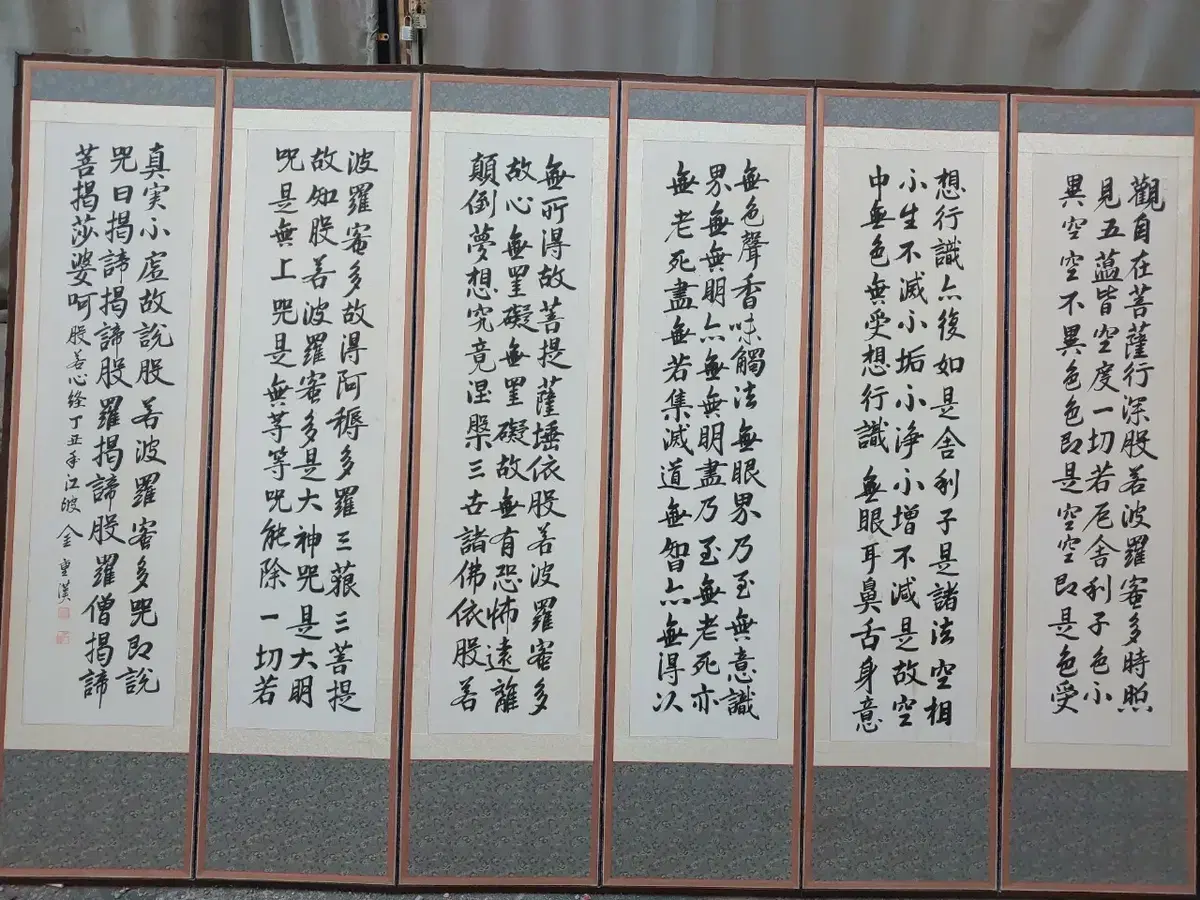 觀自在菩薩行深般若波羅蜜多時照
見五蘊皆空度一切苦厄舍利子色不
異空空不異色色即是空空即是色受
想行識亦復如是舍利子是諸法空相
不生不滅不垢不淨不增不減是故空
中無色無受想行識無眼耳鼻舌身意
無色聲香味觸法無眼界乃至無意識
界無無明亦無無明盡乃至無老死亦
無老死盡無苦集滅道無智亦無得以
無所得故菩提薩埵依般若波羅蜜多
故心無罣礙無罣礙故無有恐怖遠離
顛倒夢想究竟涅槃三世諸佛依般若
波羅蜜多故得阿耨多羅三藐三菩提
故知般若波羅蜜多是大神咒是大明
咒是無上咒是無等等咒能除一切苦
真実不虛故說般若波羅蜜多咒即說
咒曰揭諦揭諦般羅揭諦般羅僧揭諦
菩揭莎婆呵 般若心經 丁丑年 江坡 金重漢